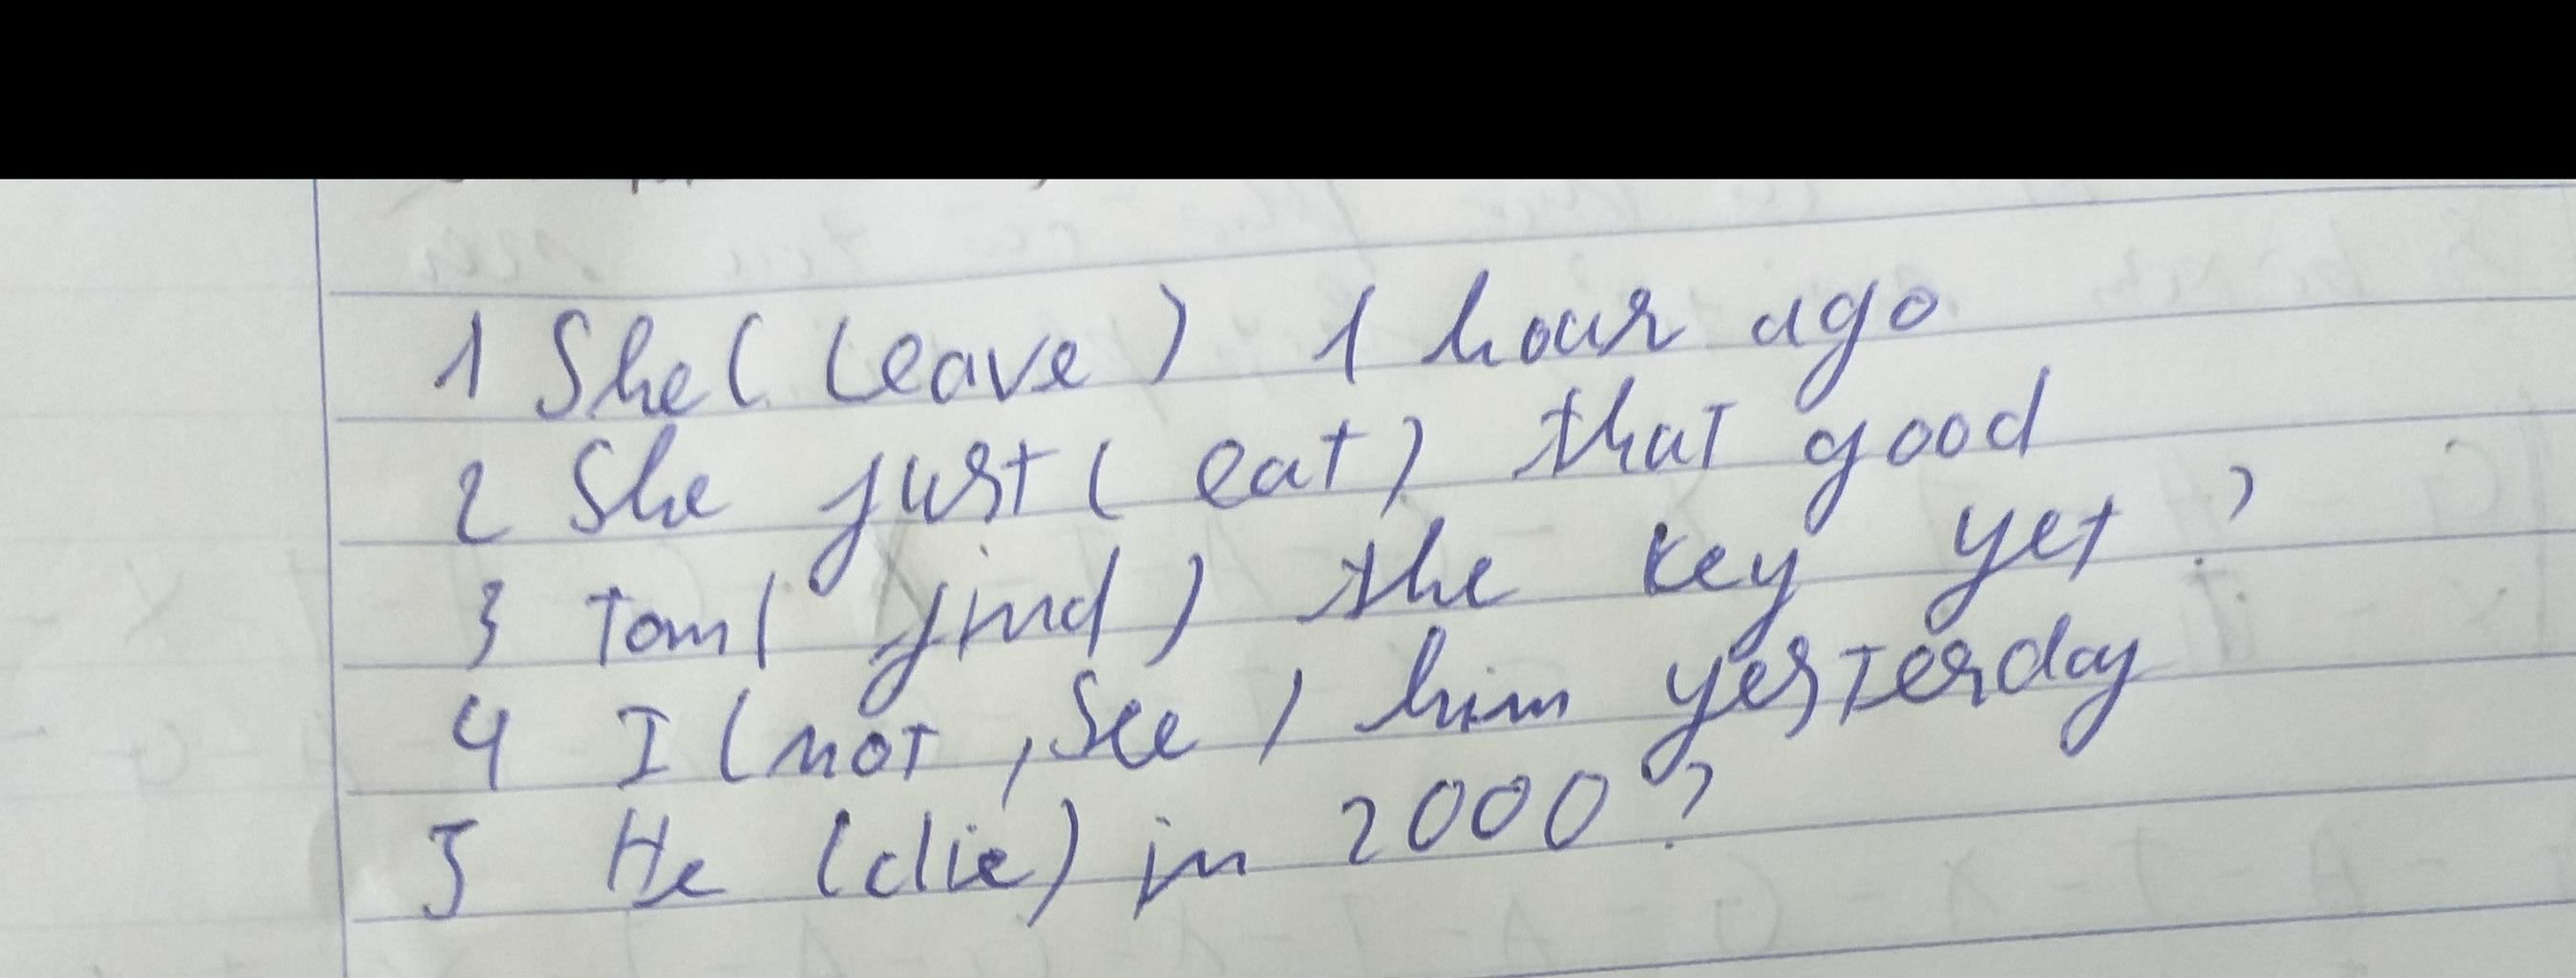 1 She ( leave ) 1 hour ago
2 She just ( eat ) that good
3 Tom ( find ) the key yet ?
4 I ( not , see ) him yesterday
5 He ( die ) in 2000 ?